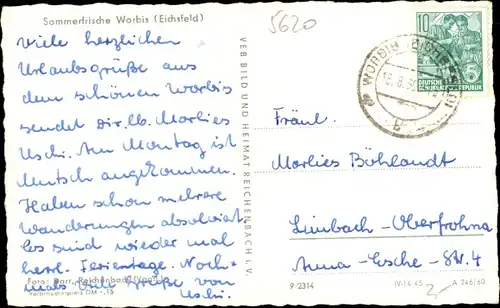 Sommerfrische Worbis (Eichsfeld)
5620
Viele herzlichen
Urlaubsgrüße aus
dem schönen Worbis
sendet Dir, lb. Marlies
Uschi. Am Montag ist
Mutsch angekommen.
Haben schon mehrere
Wanderungen absolviert.
Es sind wieder mal
herrl. Ferientage. Noch-
mals viele Grüße von
Uschi.
Foto: Darr, Reichenbach (Vogtl)
Verbraucherpreis DM -,15
VEB BILD UND HEIMAT REICHENBACH I. V.
10
DEUTSCHE
DEMOKRATISCHE REPUBLIK
WORBIS (EICHSFELD)
Fräul.
Marlies Böhlandt
Limbach-Oberfrohna
Anna-Esche-Str. 4
9/2314
IV-14-45
A 246/60